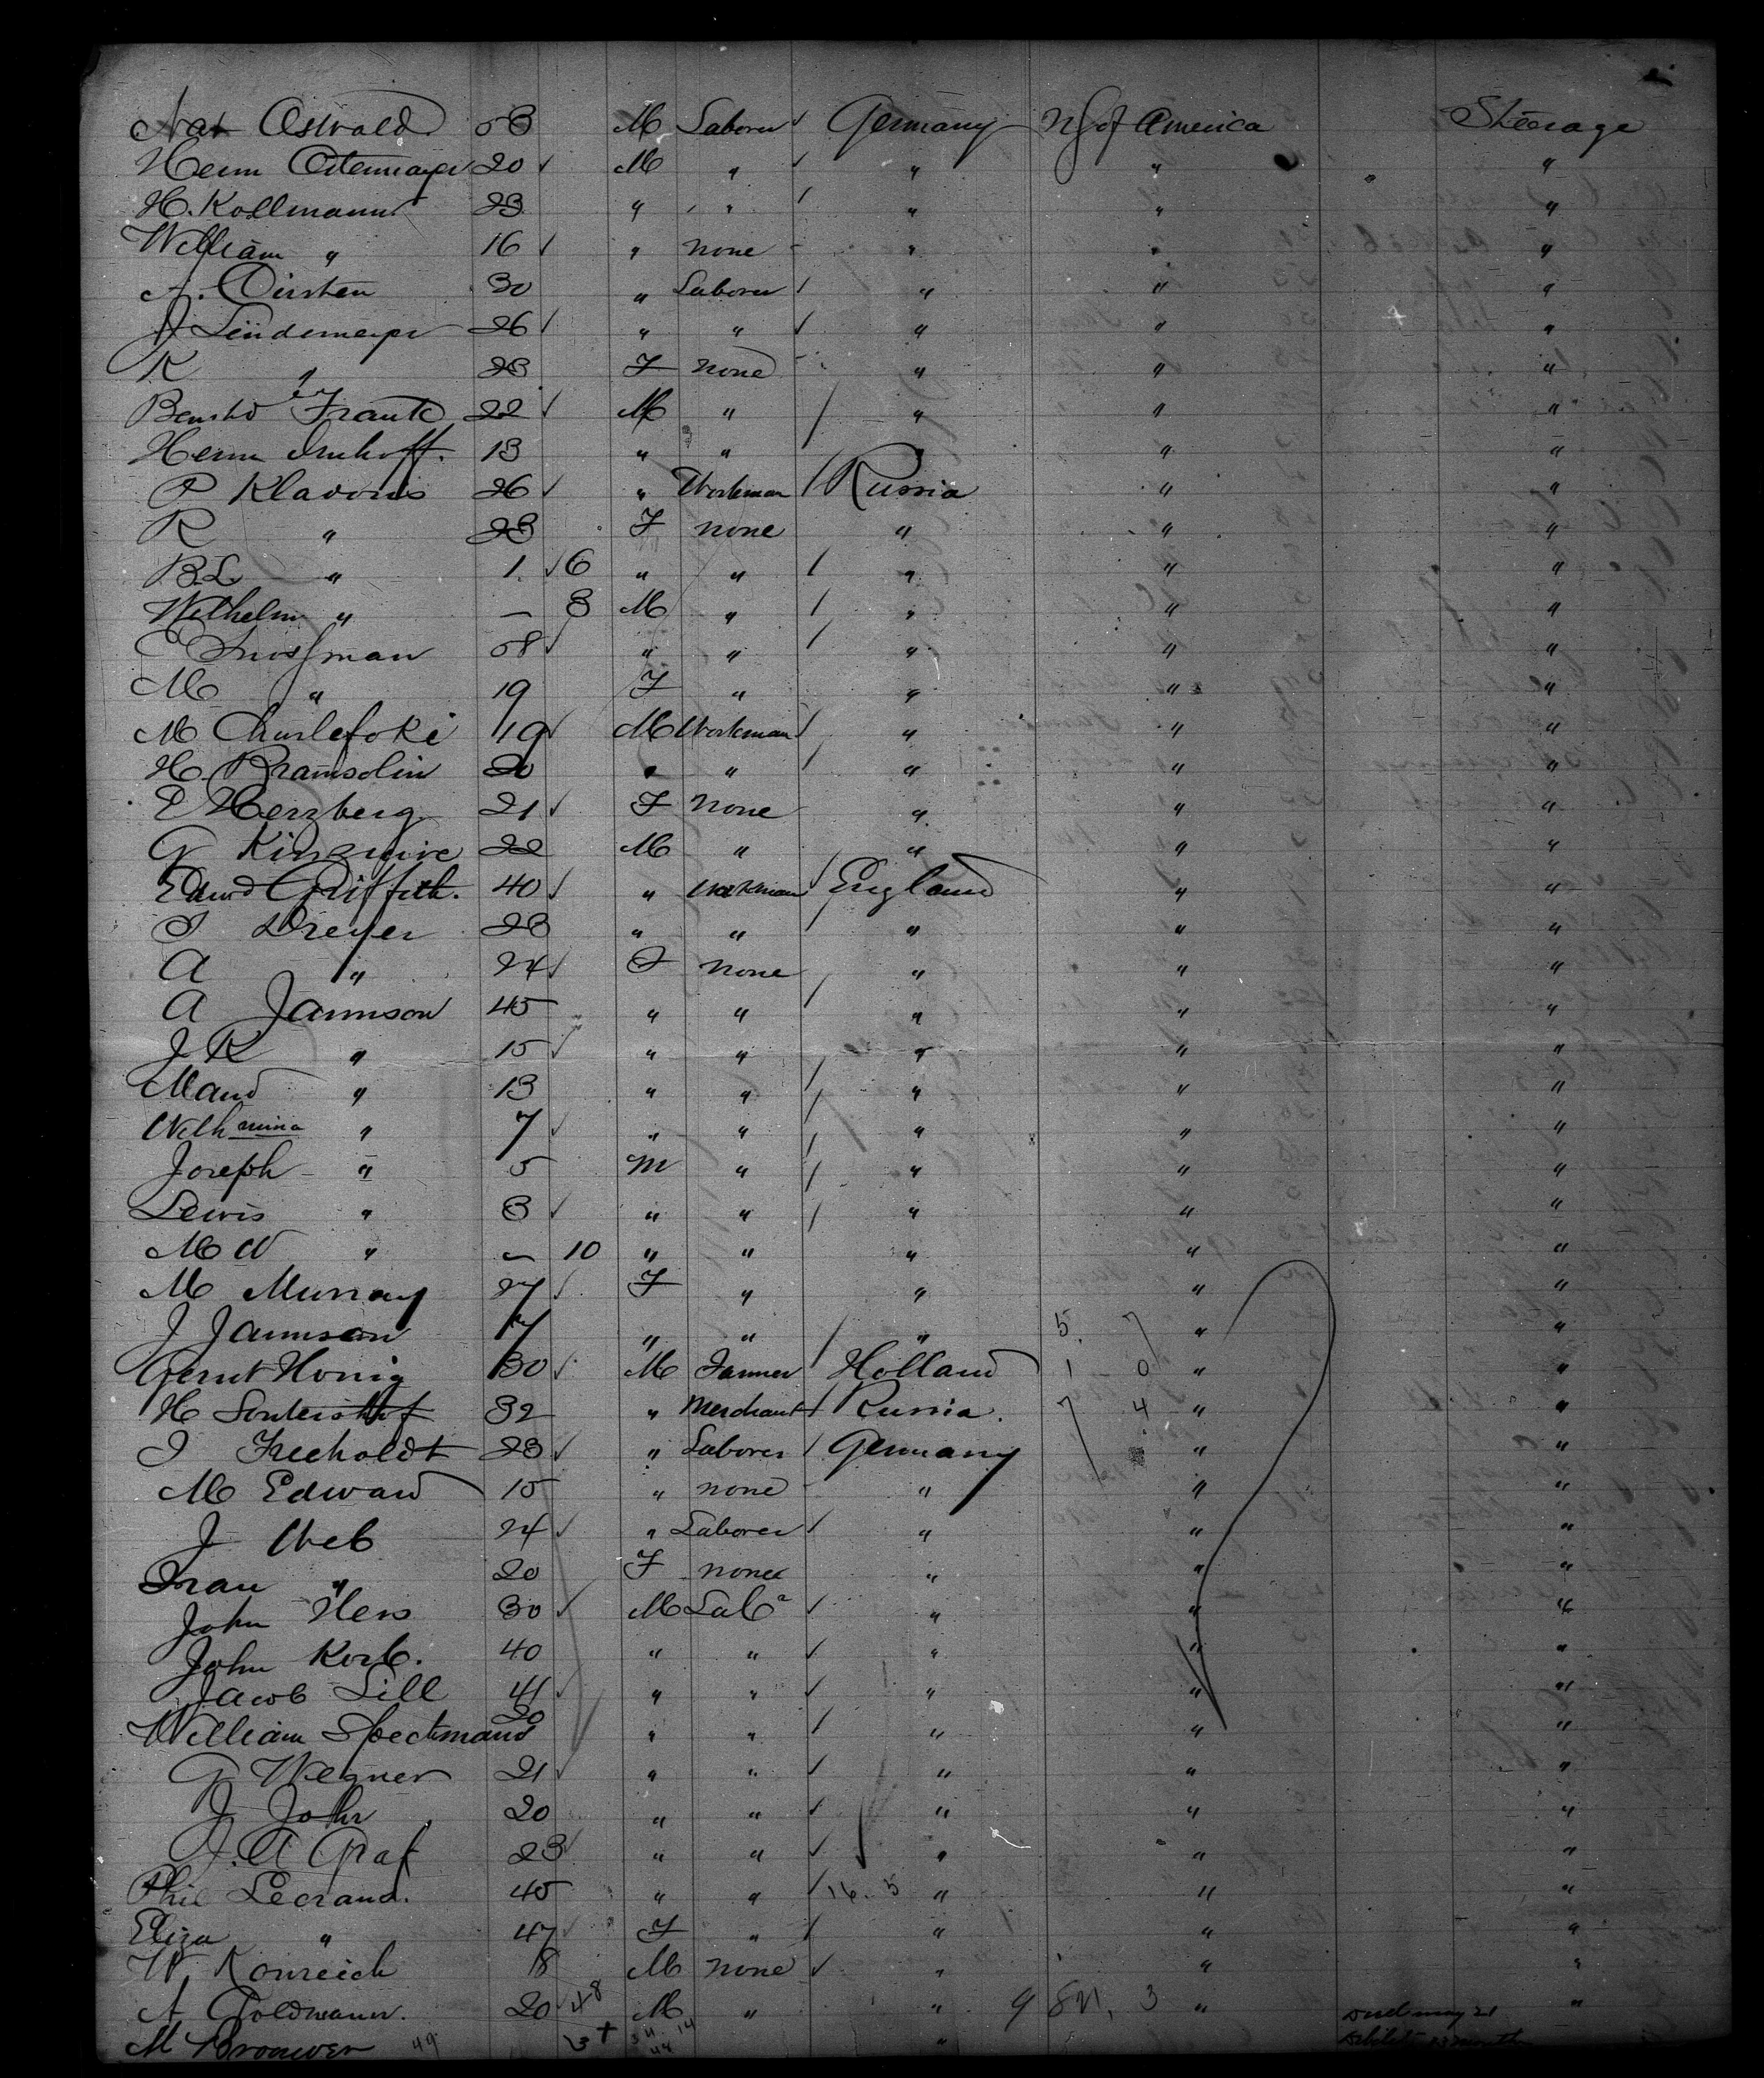 Nat Ostwald 53 M Laborer Germany US of America Steerage
Herm Ostermayer 20 M " " " "
H. Kollmann 23 " " " " "
William " 16 " none " " "
A. Dirsten 30 " Laborer " " "
J Lindemeyer 26 " " " " "
K " 23 F none " " "
Frank 22 M " " " "
Herm Imhoff. 13 " " " " "
P Klavons 26 " Workman Russia " "
R " 23 F none " " "
B.L. " 1. 6 " " " " "
Wilhelm " — 3 M " " " "
58 " " " " "
M " 19 F " " " "
M 19 M Workman " " "
H. Bramsolin 20 " " " " "
E Herzberg 21 F none " " "
G 22 M " " " "
Edwd Griffith. 40 " Workman England " "
I Dreyer 23 " " " " "
A " 24 F none " " "
A Jamison 45 " " " " "
J R " 15 " " " " "
Maud " 13 " " " " "
Wilhmina " 7 " " " " "
Joseph " 5 M " " " "
Lewis " 3 " " " " "
M W " — 10 " " " " "
M Murray 27 F " " " "
J Jamison 17 " " " 5. 7 " "
Gerrit Honig 30 M Farmer Holland 1 0 " "
H 32 " Merchant Russia. 7 4 " "
I Freeholdt 23 " Laborer Germany " "
M Edward 15 " none " " "
J Web 24 " Laborer " " "
Frau " 20 F none " " "
John Hess 30 M Labr " " "
John Korb. 40 " " " " "
Jacob Lill 41 " " " " "
William Speckmann 20 " " " " "
G Wegner 21 " " " " "
J John 20 " " " " "
J. A Graf 23 " " " " "
Phil Legrand. 45 " " 16. 5 " " "
Eliza " 47 F " " " "
W. Konreich 18 M none " " "
A Goldmann. 20 48 M " " 9 821, 3 " Died May 21 "
M Brouwer 49 3+ 34 14 44 "